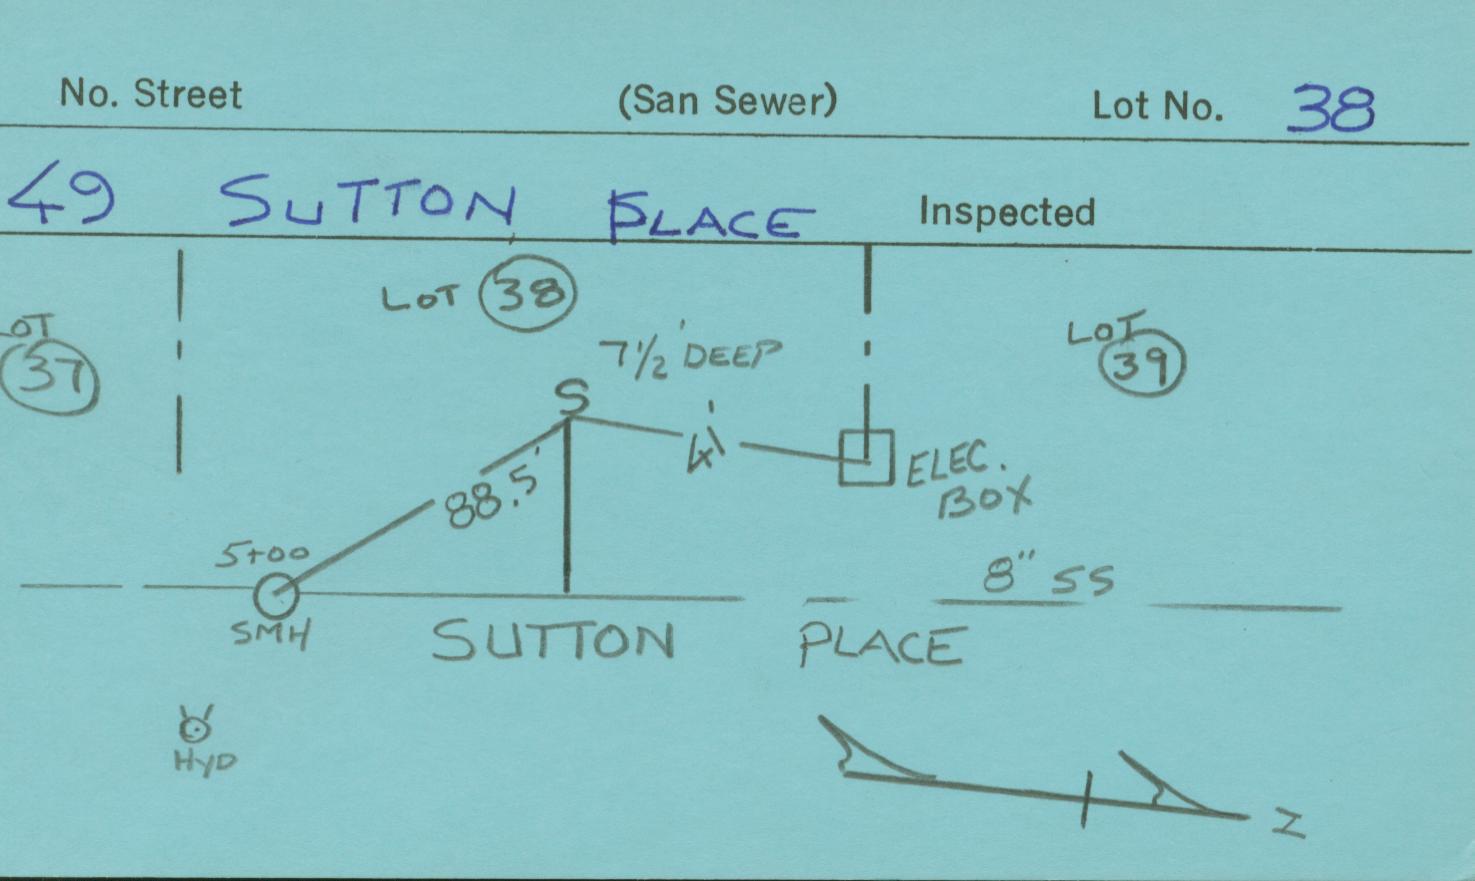 No. Street (San Sewer) Lot No. 38
49 SUTTON PLACE Inspected
LOT 38
LOT 37
7 1/2' DEEP
LOT 39
S
4'
88.5'
ELEC. BOX
5+00
8" SS
SMH
SUTTON PLACE
HYD
N